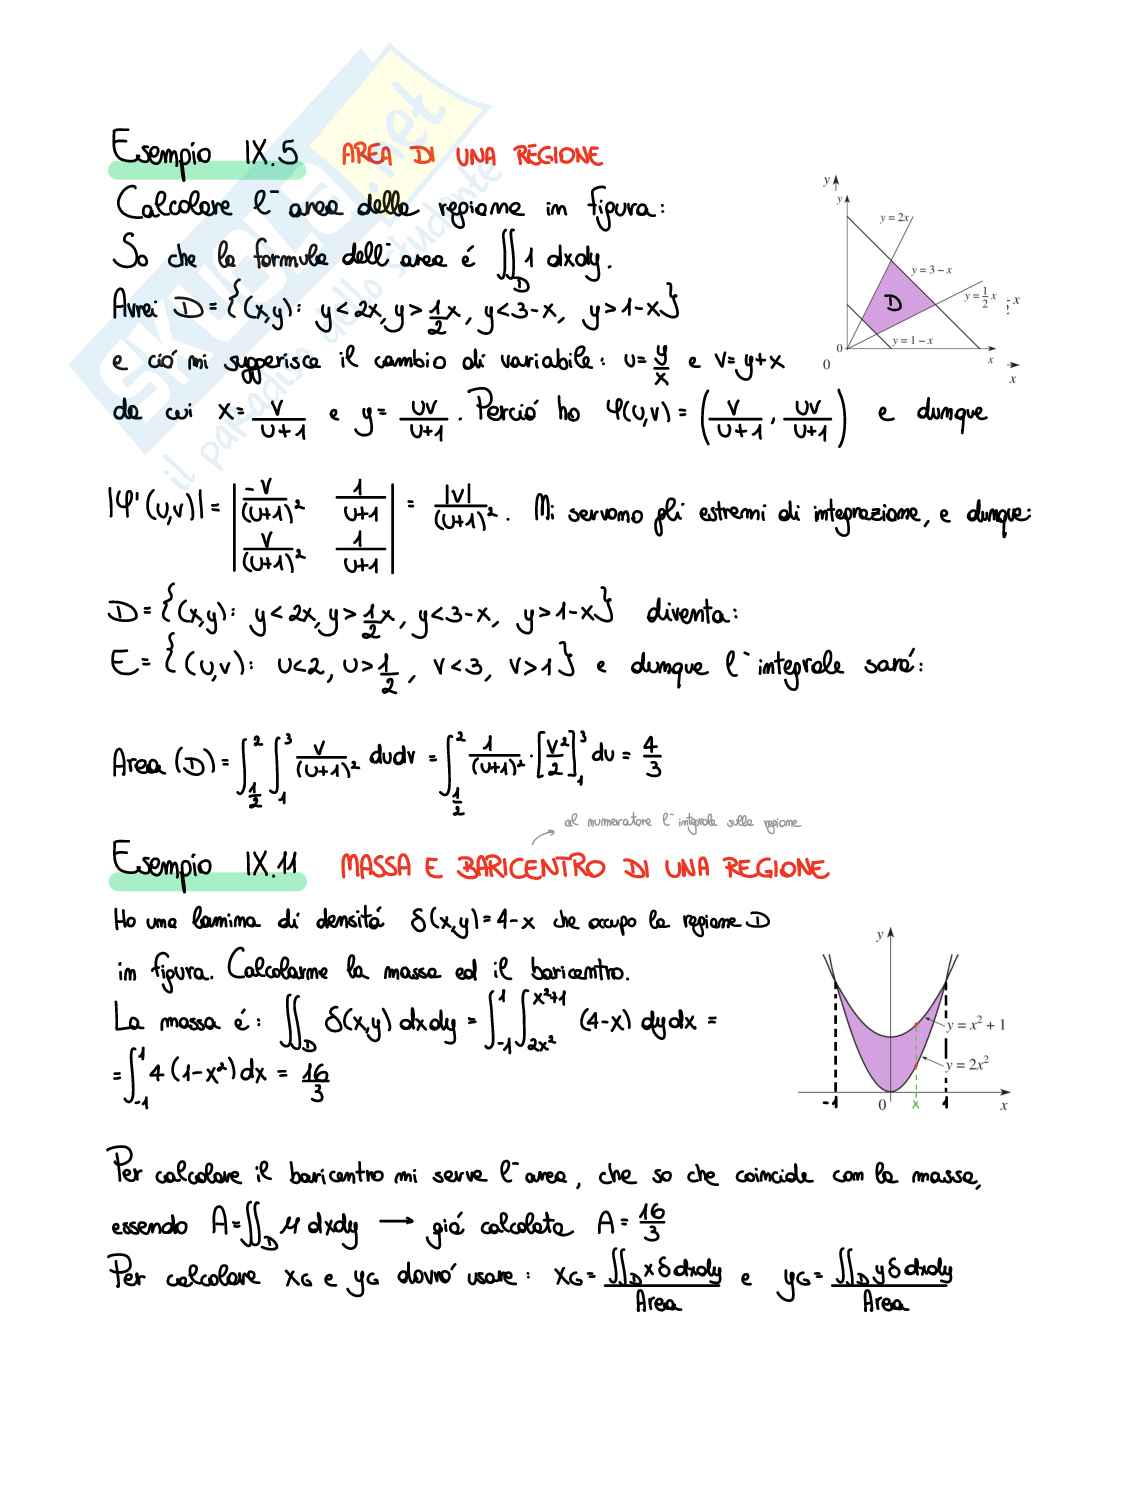 Esempio IX.5 AREA DI UNA REGIONE
Calcolare l'area della regione in figura:
So che la formula dell'area é ∬_D 1 dxdy.
Avrei D={(x,y): y<2x, y>1/2 x, y<3-x, y>1-x}
e ció mi suggerisce il cambio di variabile: u=y/x e v=y+x
da cui x=v/(u+1) e y=uv/(u+1). Perció ho φ(u,v)=(v/(u+1), uv/(u+1)) e dunque
|φ'(u,v)|=|-v/(u+1)² 1/(u+1)
v/(u+1)² 1/(u+1)|=|v|/(u+1)². Mi servono gli estremi di integrazione, e dunque:
D={(x,y): y<2x, y>1/2 x, y<3-x, y>1-x} diventa:
E={(u,v): u<2, u>1/2, v<3, v>1} e dunque l'integrale sará:
Area (D)=∫_{1/2}^2 ∫_1^3 v/(u+1)² dudv = ∫_{1/2}^2 1/(u+1)² · [v²/2]_1^3 du = 4/3
al numeratore l'integrale sulla regione
Esempio IX.11 MASSA E BARICENTRO DI UNA REGIONE
Ho una lamina di densitá δ(x,y)=4-x che occupo la regione D
in figura. Calcolarne la massa ed il baricentro.
La massa é: ∬_D δ(x,y) dxdy = ∫_{-1}^1 ∫_{2x²}^{x²+1} (4-x) dydx =
=∫_{-1}^1 4(1-x²)dx = 16/3
Per calcolare il baricentro mi serve l'area, che so che coincide con la massa,
essendo A=∬_D μ dxdy → giá calcolata A=16/3
Per calcolare x_G e y_G dovró usare: x_G=∬_D x δ dxdy/Area e y_G=∬_D y δ dxdy/Area
y
y
y = 2x
y = 3 − x
y = 1/2 x
x
D
y = 1 − x
0
x
0
x
y
y = x² + 1
y = 2x²
-1
0
x
1
x
SKUOLA.net
il paradiso dello studente